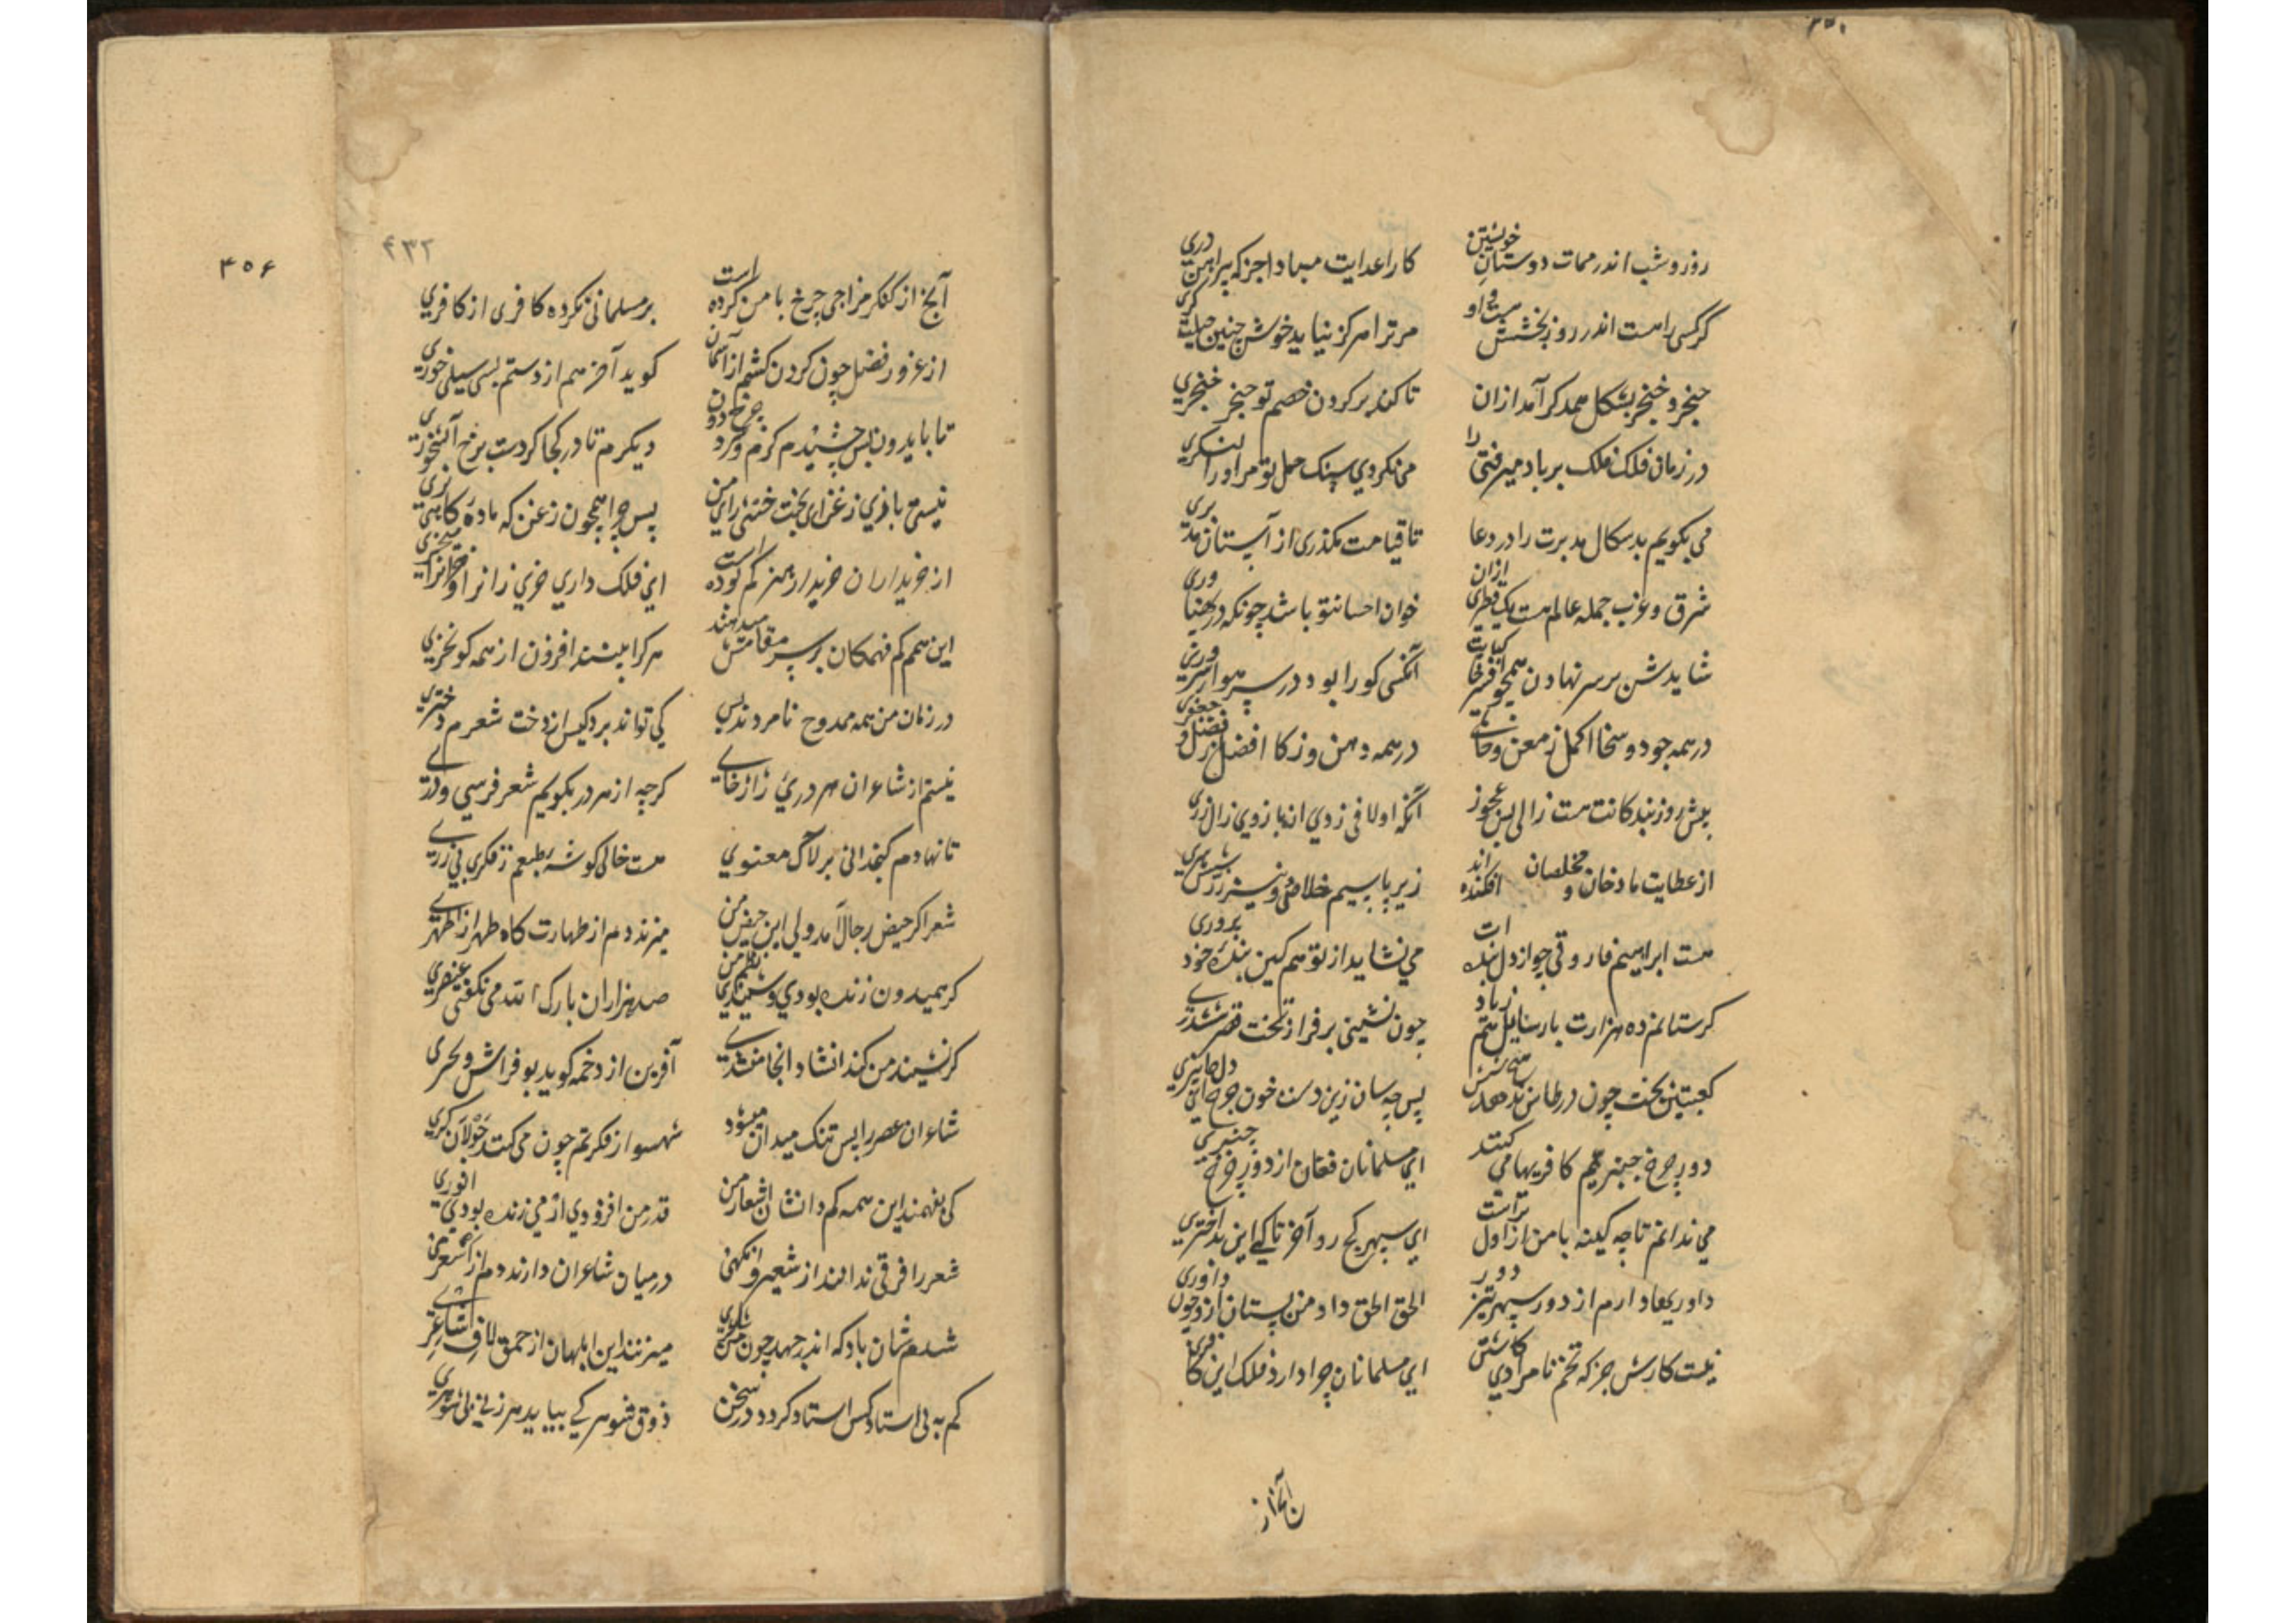 روز و شب اندر ممات دوستان خویشتن
کار اعدایت مبادا جز که پیراهن دری
گر کسی را هست اندر روز بخشش
مر ترا هرگز نیاید خوش چنین
حنجر و خنجر بشکل همدگر آمد ازان
تا کند بر گردن خصم تو حنجر خنجری
در زمان فلک فلک بر باد میرفتی را
می نکردی سنک حمل تو مر او را لنگری
می بگویم بدسگال مدبرت را در دعا
تا قیامت نگذری از آستان
شرق و غرب جمله عالم هست یک قطری ازان
خوان احسان تو باشد چونکه در
شاید شن بر سر نهادن همچو افسر
آنکسی کو را بود در سر هوای
در همه جود و سخا اکمل ز معن و
در همه ذهن و زکا افضل ز فضل و جعفری
پیش روز بندگانت هست زالی بس عجوز
آنکه او لافی زدی از بازوی زال زری
از عطایت مادحان و مخلصان افکنده اند
زیر پا سیم خلاص و
هست ابراهیم فاروقی چو از دل بنده ات
می نشاید از تو هم کین بنده خود پروری
کر ستانم ده هزارت بار سایل هم زیاد
چون نشینی بر فراز تخت قصر ششدری
کعبتین بخت چون در طاس ندهد
پس چه سان زین دست خون چرخ
دور چرخ چنبریم کافریها می کند
ای مسلمانان فغان از دور چرخ چنبری
می ندانم تا چه کینه با من از اول تراست
ای سپهر کج رو آخر تا کی این بد اختری
داوریها دارم از دور سپهر تیز دور
الحق الحق داد من بستان ازو چون داوری
نیست کارش جز که تخم نامرادی کاشتن
ای مسلمانان چرا دارد فلک این کافری
آنج از
۴۵۶
۴۳۲
آنج از کفکر مزاجی چرخ با من کرده است
بر مسلمانی نکرده کافری از کافری
از غرور فضل چون گردن کشم از آسمان
کوید آخر هم از دستم بسی سیلی خوری
تا باید ون بس چشیدم گرم و سرد چرخ دون
دیکرم تا در کجا کردست برخ آبشخوری
نیستی بازی زغن ای بخت خفته رای من
پس چرا همچون زغن که ماده گاهی نری
از خریداران خریدار هنر کم بوده است
این فلک داری خری زانرا
این همم کم فهمکان بر سر مقامش میدهند
هر کرا بینند افزون از همه کون خری
در زمان من همه ممدوح نامردند بس
کی تواند برد کس از دخت شعرم دختری
نیستم از شاعران هر دری ژاژ خای
کرچه از هر در بگویم شعر فرسی و دری
تا نهادم کنجدانی بر لآل معنوی
هست خالی کوشه طبعم ز فکر بی زری
شعر اگر حیض رجال آمد ولی این حیض من
میزند دم از طهارت گاه طهر از اطهری
گر همیدون زنده بودی و شنیدی نظم من
صد هزاران بارک الله می نکفتی عنصری
کر نشیند من کند انشاد انجا منشدی
آفرین از دخمه کوید بو فراش و بحری
شاعران عصر را بس تنک میدان میشود
شهسوار فکرتم چون می کند جولان کری
کی بفهمند این همه کم دانشان اشعار من
قدر من افزودی ار می زنده بودی انوری
شعر را فرقی ندانند از شعیر و انکهی
در میان شاعران دارند دم از اشعری
شرمشان باد که اندر عهد چون من
میزنند این ابلهان از حمق لاف شاعری
کم به بی استاد کس استاد کردد در سخن
ذوق شوهر کی بیابد هر زنی بی شوهری